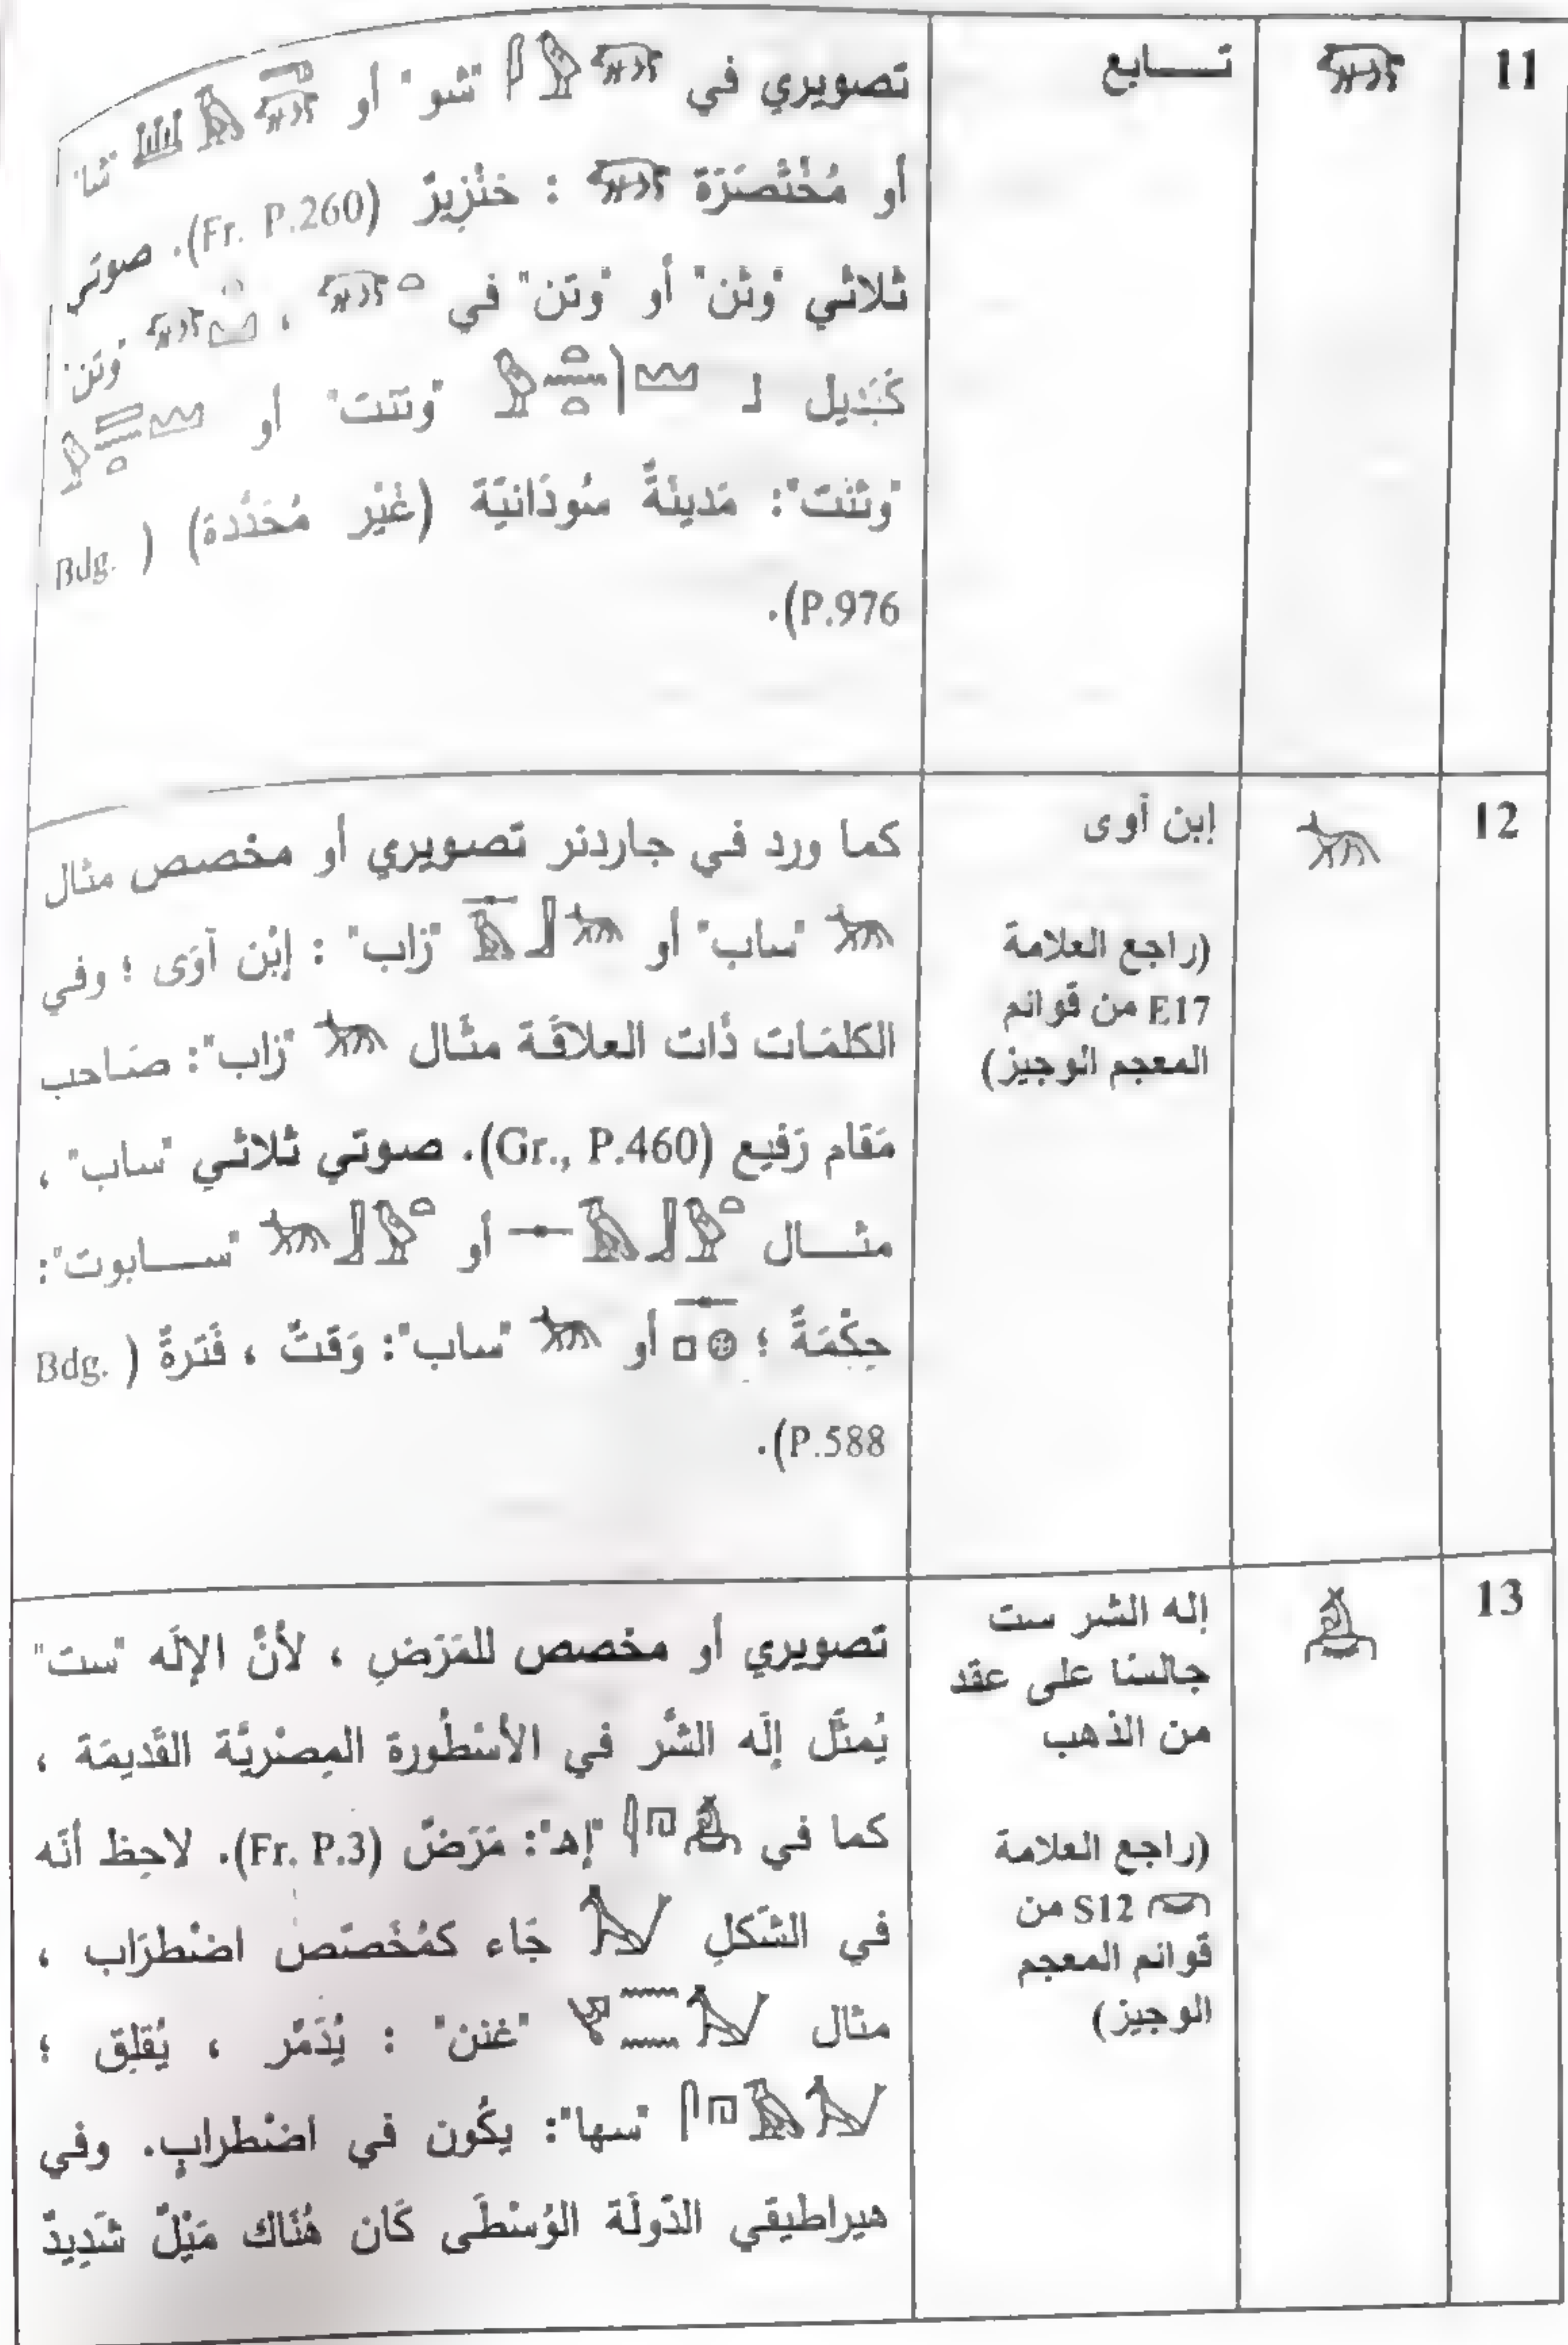 11
تــــابع
تصويري في 𓃟𓅱𓆷 "شو" أو 𓃟𓄿𓆷 "شا"
أو مُخْتَصَرَة 𓃟 : خنْزِيرٌ (Fr. P.260). صوتي
ثلاثي "وثن" أو "وتن" في 𓃟𓏏 ، 𓃟𓈉 "وتن"
كَبَديل لـ 𓅱𓏏𓈖𓏏𓌙𓈉 "وتنت" أو 𓅱𓍿𓈖𓏏𓈉
"وثنت": مَدينَةٌ سُودَانيَّة (غَيْر مُحَدَّدة) (Bdg.
P.976).
12
إبن آوى
(راجع العلامة
E17 من قوائم
المعجم الوجيز)
كما ورد في جاردنر تصويري أو مخصص مثال
𓃥 "ساب" أو 𓊃𓄿𓃀𓃥 "زاب" : إبْن آوَى ؛ وفي
الكلمَات ذَات العلاقَة مثَال 𓃥 "زاب": صَاحب
مَقام رَفيع (Gr., P.460). صوتي ثلاثي "ساب" ،
مثــــال 𓊃𓄿𓃀𓅱𓏏 أو 𓃥𓃀𓅱𓏏 "ســــابوت":
حِكْمَةٌ ؛ 𓊃𓊪𓊖 أو 𓃥 "ساب": وَقتٌ ، فَتَرةٌ (Bdg.
P.588).
13
إله الشر ست
جالسًا على عقد
من الذهب
(راجع العلامة
𓋞 S12 من
قوائم المعجم
الوجيز)
تصويري أو مخصص للمَرَضِ ، لأنَّ الإلَه "ست"
يُمثَّل إلَه الشَّر في الأسْطُورة المِصْريَّة القَديمَة ،
كما في 𓇋𓉔𓁣 "إهـ": مَرَضٌ (Fr. P.3). لاحِظ أنَّه
في الشَّكلِ 𓃩 جَاء كمُخَصَّص اضْطرَاب ،
مثال 𓐍𓈖𓈖𓃩 "غنن" : يُدَمَّر ، يُقلِق ؛
𓋴𓉔𓄿𓃩 "سها": يكُون في اضْطرابٍ. وفي
هيراطيقي الدَّولَة الوُسْطَى كَان هُنَاك مَيْلٌ شَدِيدٌ